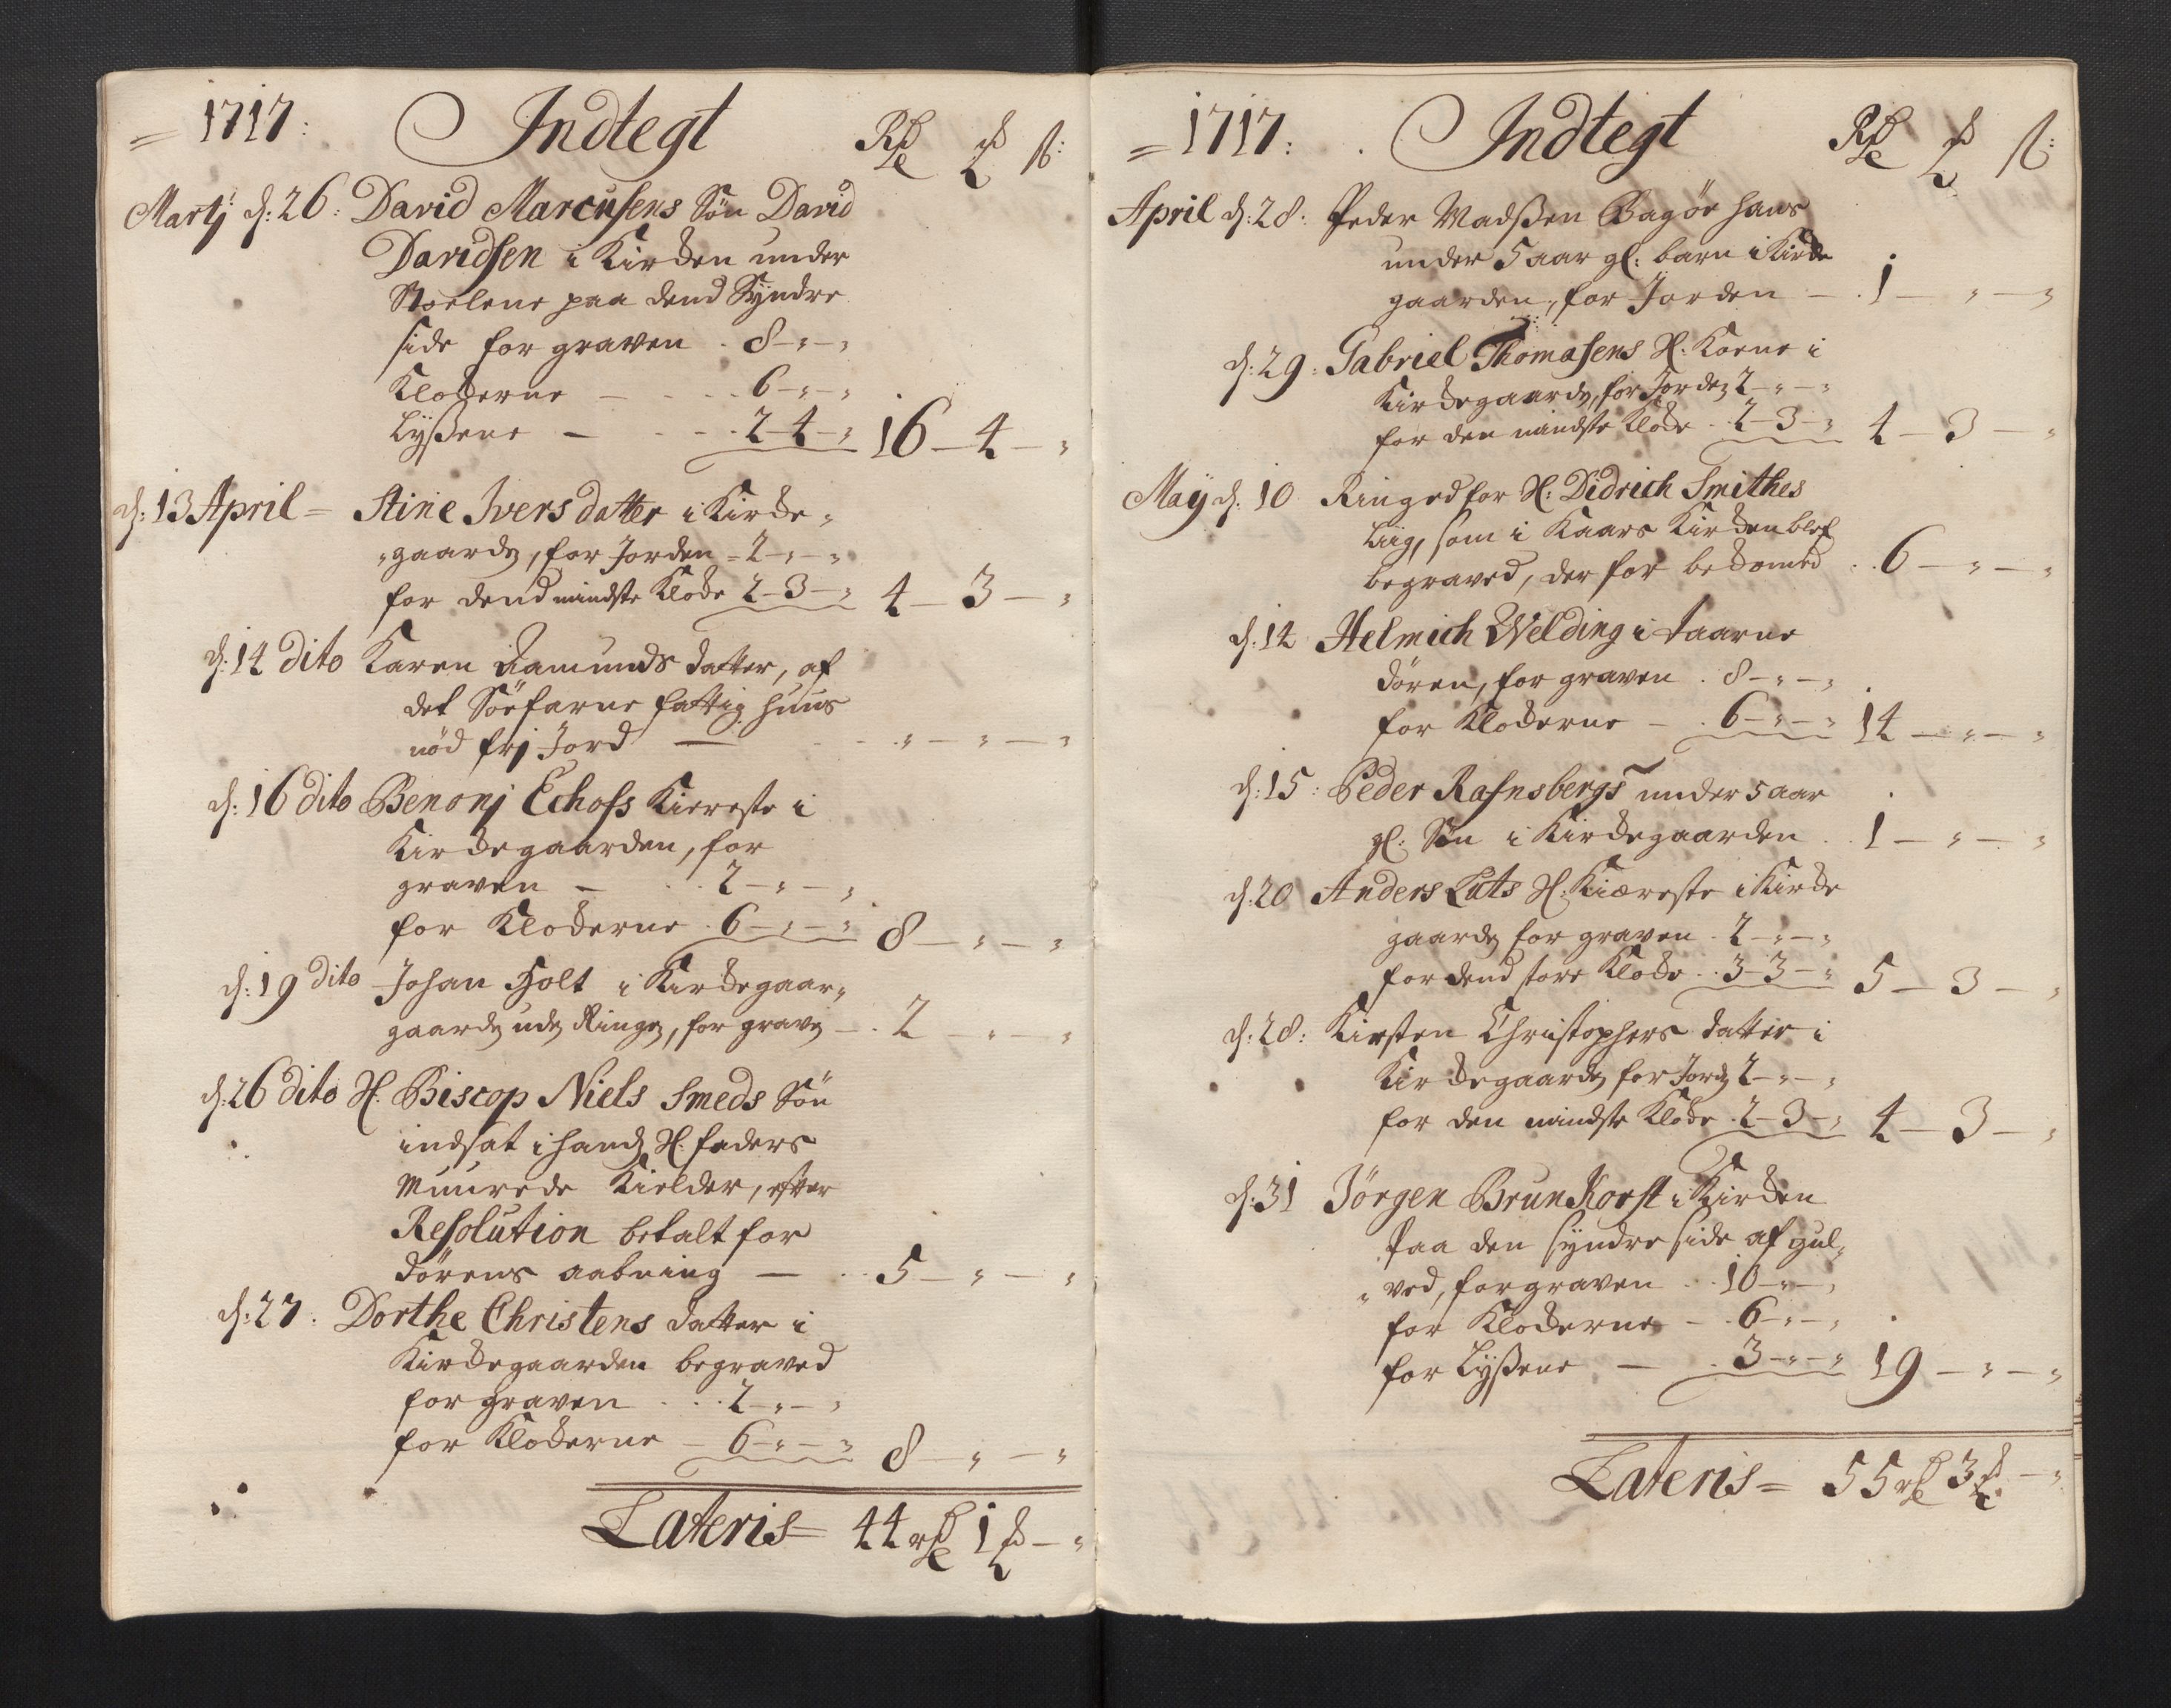 1717: Indtegt Rdr mk ß:
Martj d: 26: David Marcusens Søn David
Davidsen i Kirchen under
Stoelene paa dend Syndre
side for graven . 8 - " - "
Klocherne - . . 6 - " - "
Lyßene - . . 2 - 4 - " 16 - 4 - "
d: 13 April = Stine Ivers datter i Kirche-
"gaarden, for Jorden - 2 - " - "
for dend mindste Kloche 2 - 3 - " 4 - 3 - "
d: 14 dito Karen Amunds datter, af
det Söefarne fattig huus
nöd frj Jord - . . " - " - "
d: 16 dito Benonj Echofs Kiereste i
Kirchegaarden, for
graven - . . 2 - " - "
for Klocherne . 6 - " - " 8 - " - "
d: 19 dito Johan Holt i Kirchegaar-
gaarden uden Ringen, for graven - . 2 - " - "
d: 26 dito H. Biscop Niels Smeds Sön
indsat i hans H. faders
Muurede Kielder, efter
Resolution betalt for
dörens aabning - . . 5 - " - "
d: 27: Dorthe Christens datter i
Kirchegaarden begraved
for graven . . . 2 - " - "
for Klocherne - 6 - " - " 8 - " - "
Lateris = 44 rdr 1 mk - "
1717: Indtegt Rdr mk ß:
April d: 28: Peder Madßen Bagöe hans
under 5 aar gl: barn i Kirche
gaarden, for Jorden - . 1 - " - "
d: 29: Gabriel Thomasens H. Kone i
Kirchegaarden, for Jorden 2 - " - "
for den mindste Kloche . . 2 - 3 - " 4 - 3 - "
Maij d: 10 Ringed for H: Didrich Smithes
Liig, som i Kaars Kirchen blef
begraved, der for bekomed . . 6 - " - "
d: 14 Helmich Welding i taarne
dören, for graven . 8 - " - "
for Klocherne - . 6 - " - " 14 - " - "
d: 15: Peder Rafnsbergs under 5 aar
gl: Sön i Kirchegaarden . . 1 - " - "
d: 20 Anders Lats H. Kiæreste i Kirche
gaarden for graven . 2 - " - "
for dend store Kloche . . 3 - 3 - " 5 - 3 - "
d: 28: Kirsten Christophers datter i
Kirchegaarden for Jorden 2 - " - "
for den mindste Kloche . 2 - 3 - " 4 - 3 - "
d: 31 Jörgen Brun Korst i Kirchen
Paa den syndre side af gul-
"ved, for graven . . 10 - " - "
for Klocherne - . 6 - " - "
for Lyßene - . 3 - " - " 19 - " - "
Lateris = 55 rdr 3 mk - "